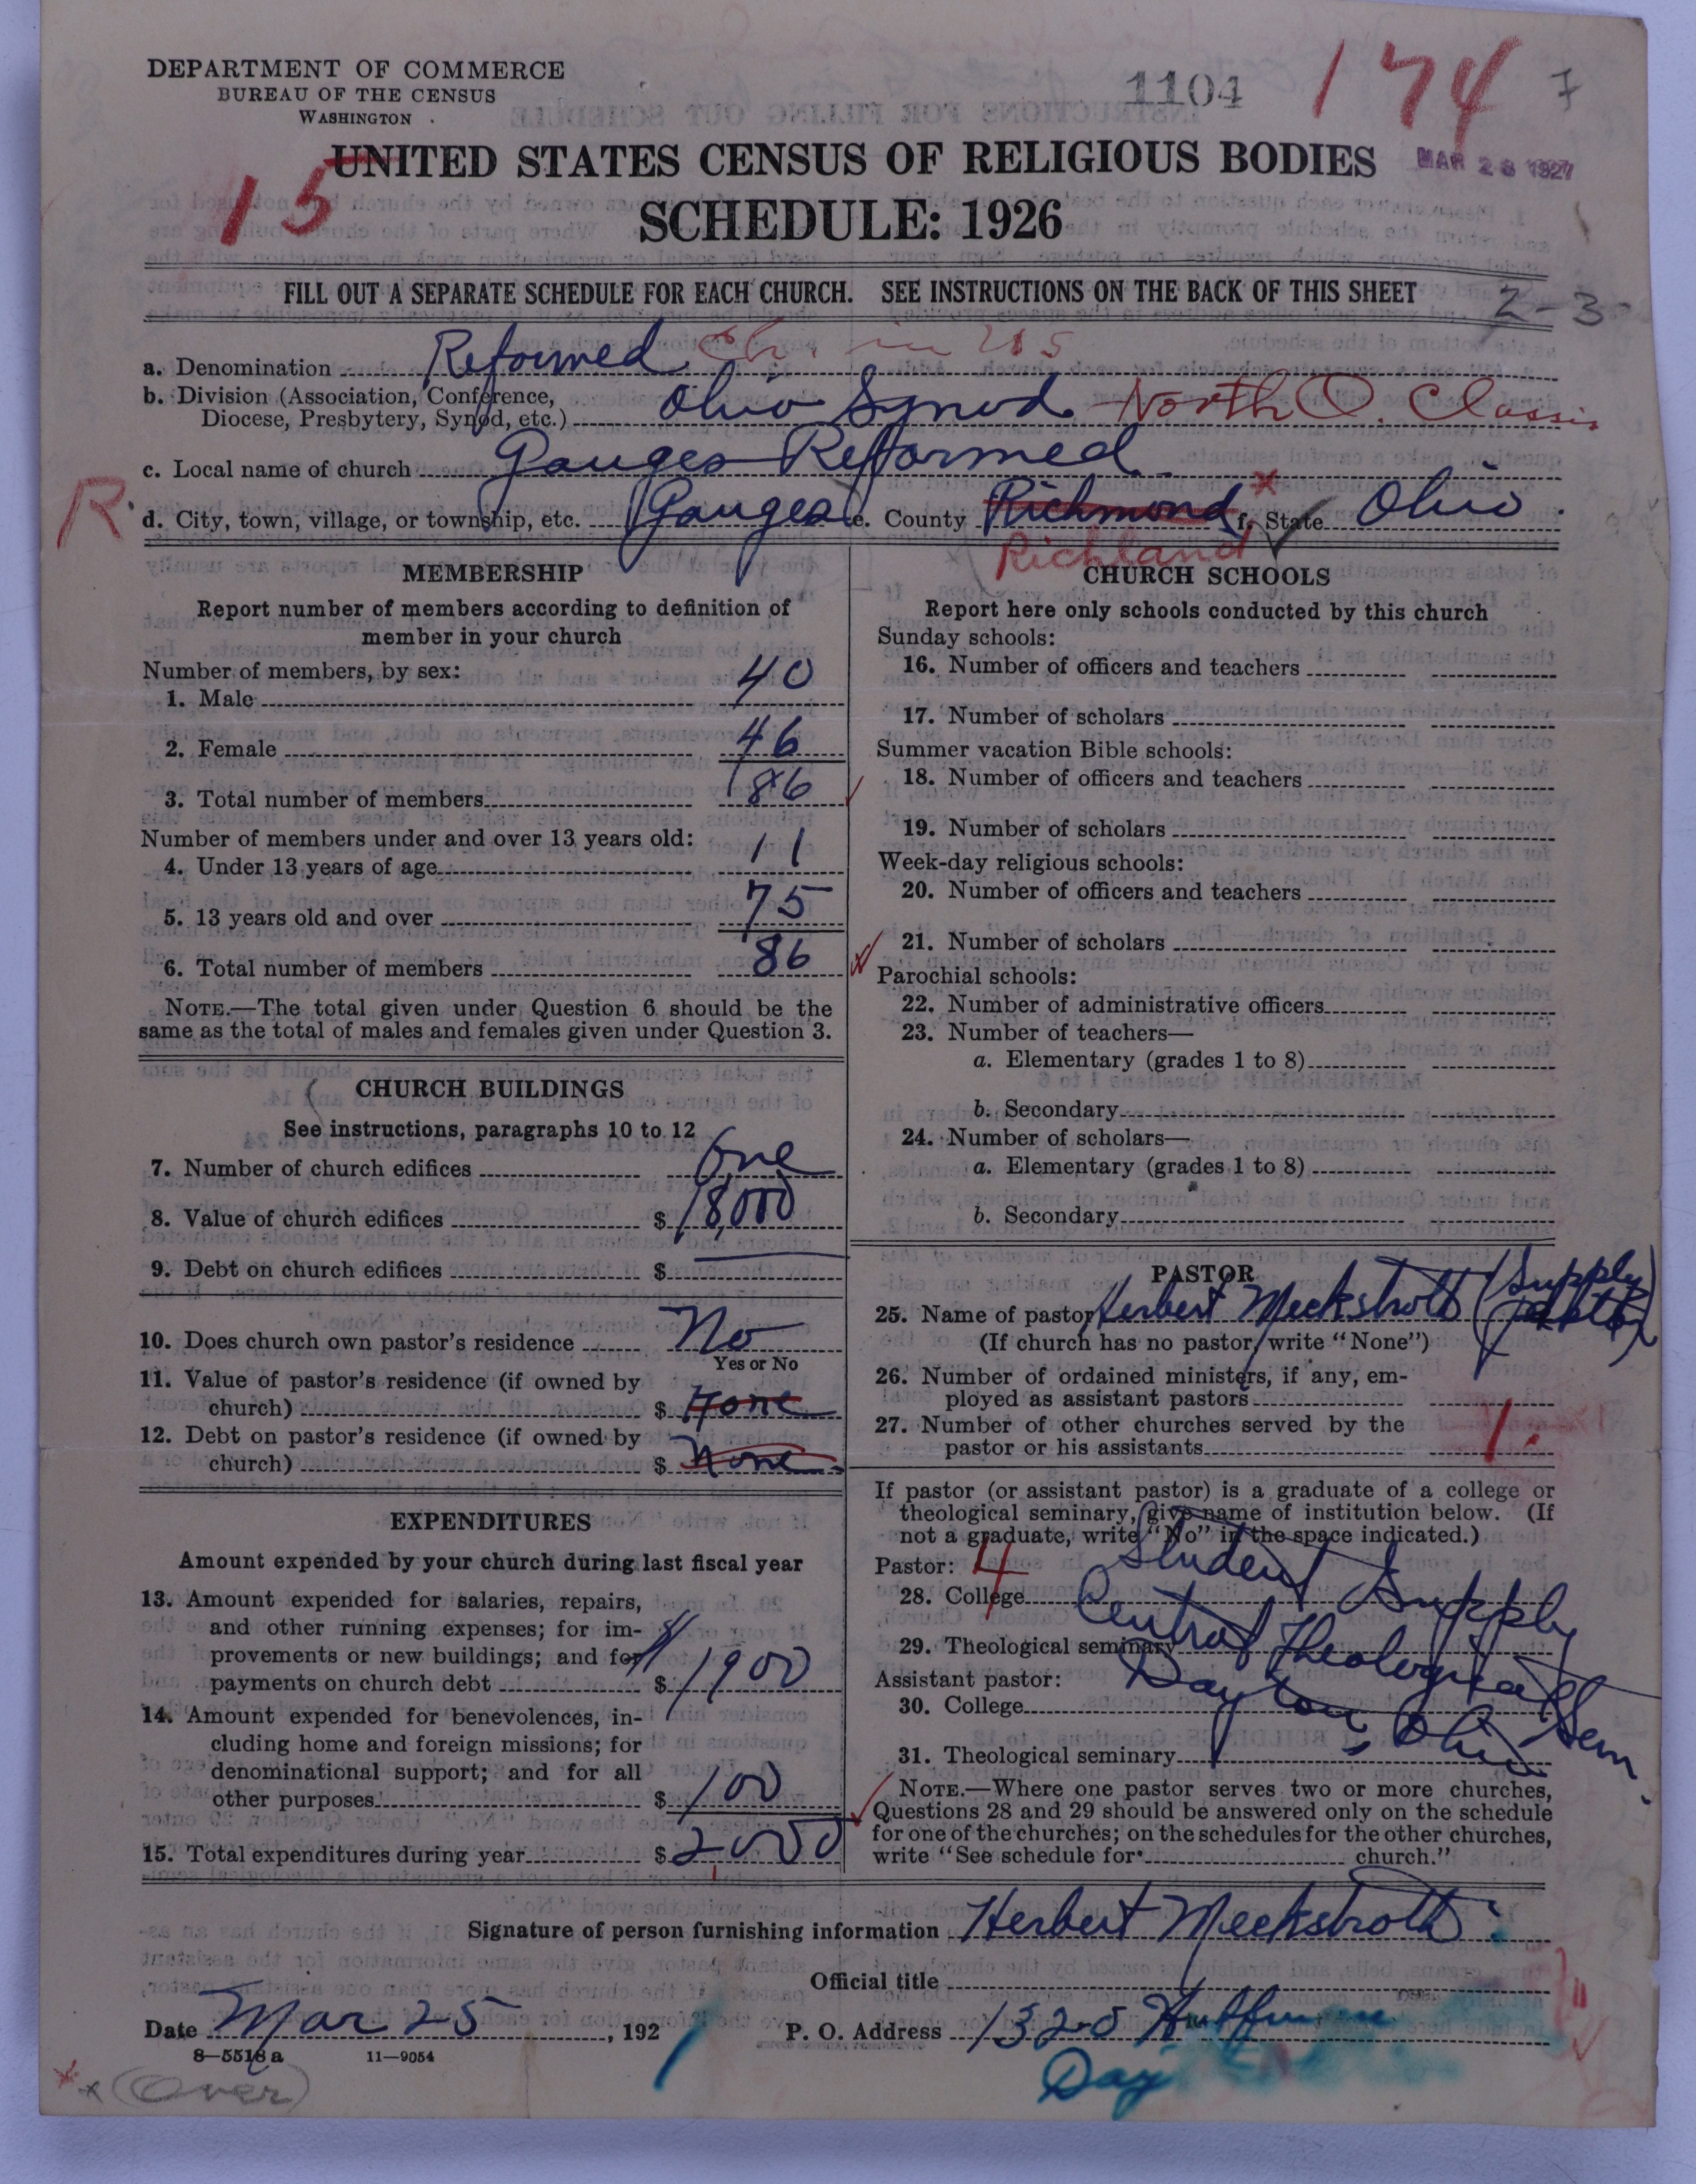 DEPARTMENT OF COMMERCE
BUREAU OF THE CENSUS
WASHINGTON
1104
174
7
15
UNITED STATES CENSUS OF RELIGIOUS BODIES
MAR 28 1927
SCHEDULE: 1926
FILL OUT A SEPARATE SCHEDULE FOR EACH CHURCH. SEE INSTRUCTIONS ON THE BACK OF THIS SHEET
2-3
a. Denomination Reformed Ch. in U S
b. Division (Association, Conference,
Diocese, Presbytery, Synod, etc.) Ohio Synod North O. Classis
c. Local name of church Ganges Reformed
R. d. City, town, village, or township, etc. Ganges e. County Richmond f. State Ohio
Richland
MEMBERSHIP
Report number of members according to definition of
member in your church
Number of members, by sex:
1. Male 40
2. Female 46
3. Total number of members 86
Number of members under and over 13 years old:
4. Under 13 years of age 11
5. 13 years old and over 75
6. Total number of members 86
NOTE.—The total given under Question 6 should be the
same as the total of males and females given under Question 3.
CHURCH BUILDINGS
See instructions, paragraphs 10 to 12
7. Number of church edifices One
8. Value of church edifices $ 18,000
9. Debt on church edifices $
10. Does church own pastor's residence No
Yes or No
11. Value of pastor's residence (if owned by
church) $ None
12. Debt on pastor's residence (if owned by
church) $ None
EXPENDITURES
Amount expended by your church during last fiscal year
13. Amount expended for salaries, repairs,
and other running expenses; for im-
provements or new buildings; and for
payments on church debt $ 1900
14. Amount expended for benevolences, in-
cluding home and foreign missions; for
denominational support; and for all
other purposes $ 100
15. Total expenditures during year $ 2000
CHURCH SCHOOLS
Report here only schools conducted by this church
Sunday schools:
16. Number of officers and teachers
17. Number of scholars
Summer vacation Bible schools:
18. Number of officers and teachers
19. Number of scholars
Week-day religious schools:
20. Number of officers and teachers
21. Number of scholars
Parochial schools:
22. Number of administrative officers
23. Number of teachers—
a. Elementary (grades 1 to 8)
b. Secondary
24. Number of scholars—
a. Elementary (grades 1 to 8)
b. Secondary
PASTOR
25. Name of pastor Herbert Meckstroth (Supply
(If church has no pastor, write "None")
26. Number of ordained ministers, if any, em-
ployed as assistant pastors
27. Number of other churches served by the
pastor or his assistants 1.
If pastor (or assistant pastor) is a graduate of a college or
theological seminary, give name of institution below. (If
not a graduate, write "No" in the space indicated.)
Pastor: 4
28. College Student Supply
29. Theological seminary Central Theological Sem.
Assistant pastor: Dayton, Ohio
30. College
31. Theological seminary
NOTE.—Where one pastor serves two or more churches,
Questions 28 and 29 should be answered only on the schedule
for one of the churches; on the schedules for the other churches,
write "See schedule for church."
Signature of person furnishing information Herbert Meckstroth
Official title
Date Mar 25, 192
P. O. Address 1320 Huffman
Day
8—5518 a
11—9054
(Over)